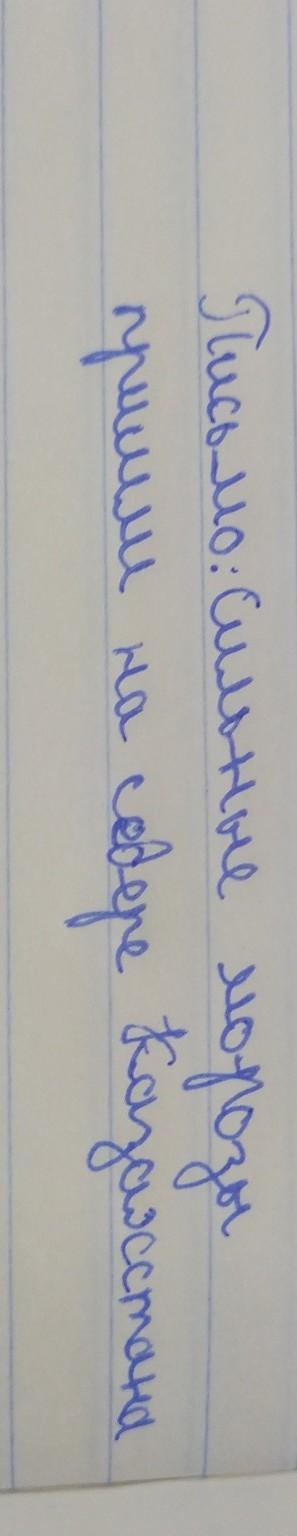 Письмо: Сильные морозы
пришли на севере Казахстана